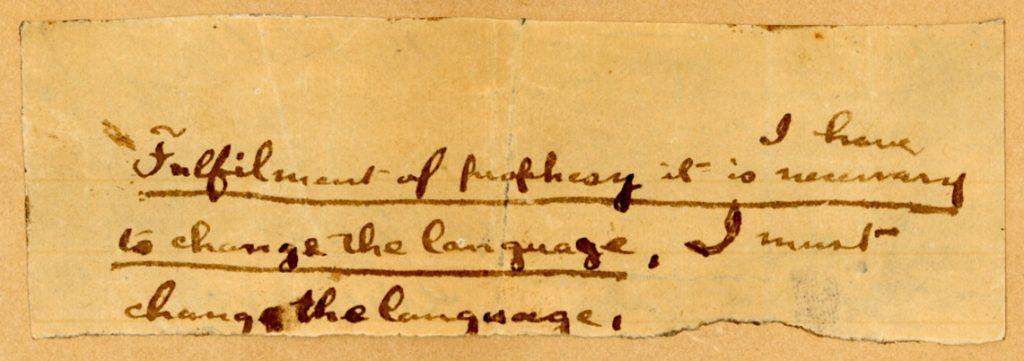 I have
Fulfilment of prophesy it is necessary
to change the language, I must
change the language,